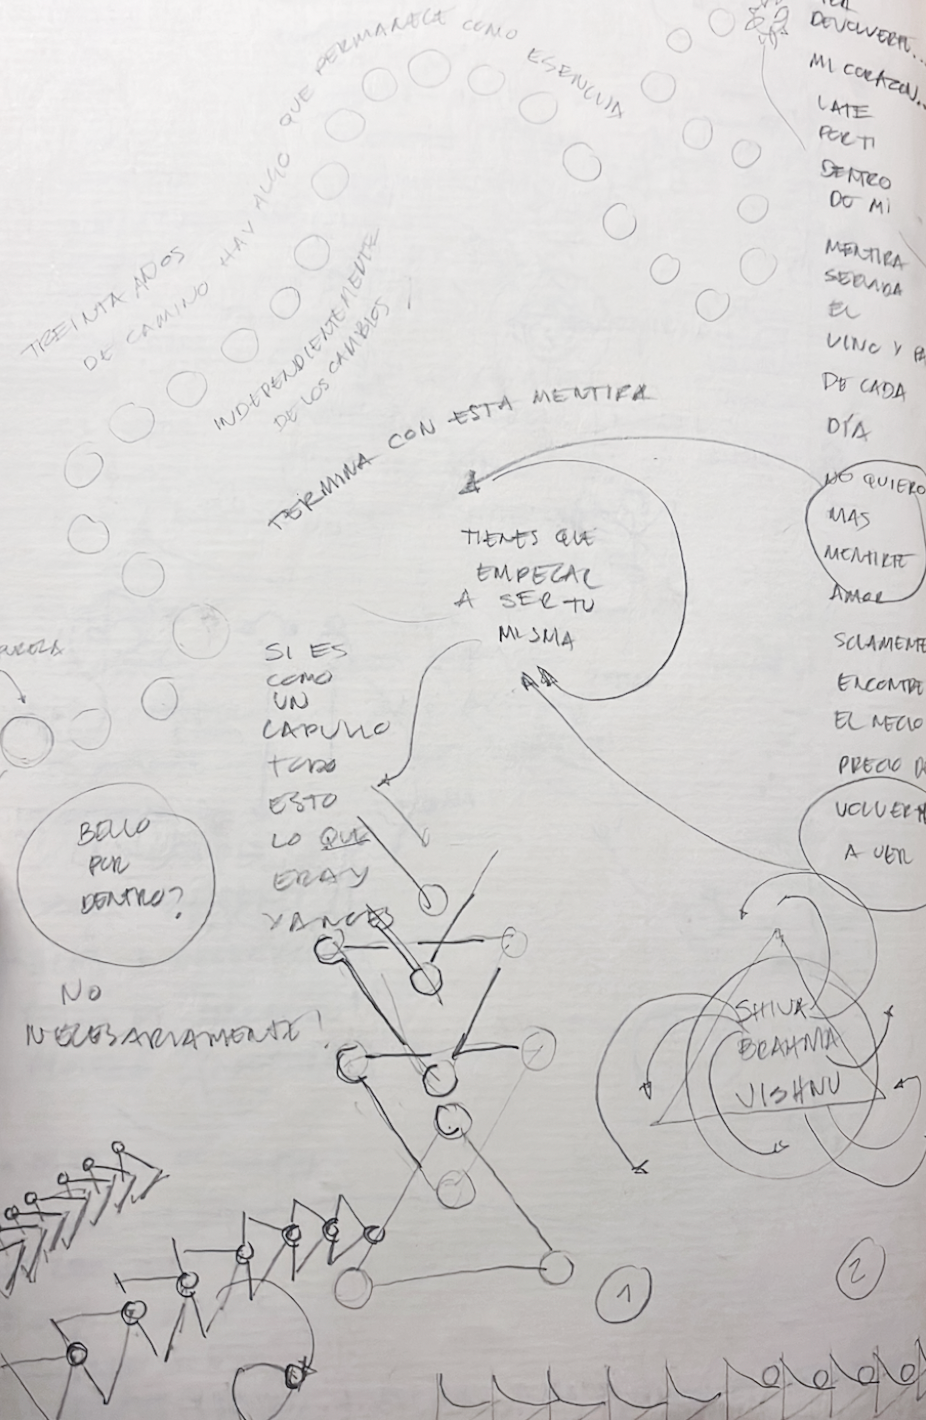 TREINTA AÑOS
DE CAMINO HAY ALGO QUE PERMANECE COMO ESENCIA
INDEPENDIENTEMENTE
DE LOS CAMBIOS!
TERMINA CON ESTA MENTIRA
TIENES QUE
EMPEZAR
A SER TU
MISMA
SI ES
COMO
UN
CAPULLO
TODO
ESTO
LO QUE
ERA Y
BELLO
POR
DENTRO?
NO
NECESARIAMENTE!
DEVOLVERTE...
MI CORAZON...
LATE
POR TI
DENTRO
DE MI
MENTIRA
SERVIDA
EL
VINO Y
DE CADA
DÍA
NO QUIERO
MAS
MENTIRTE
AMOR
SOLAMENTE
ENCONTRE
EL NECIO
PRECIO DE
VOLVERTE
A VER
SHIVA
BRAHMA
VISHNU
1
2